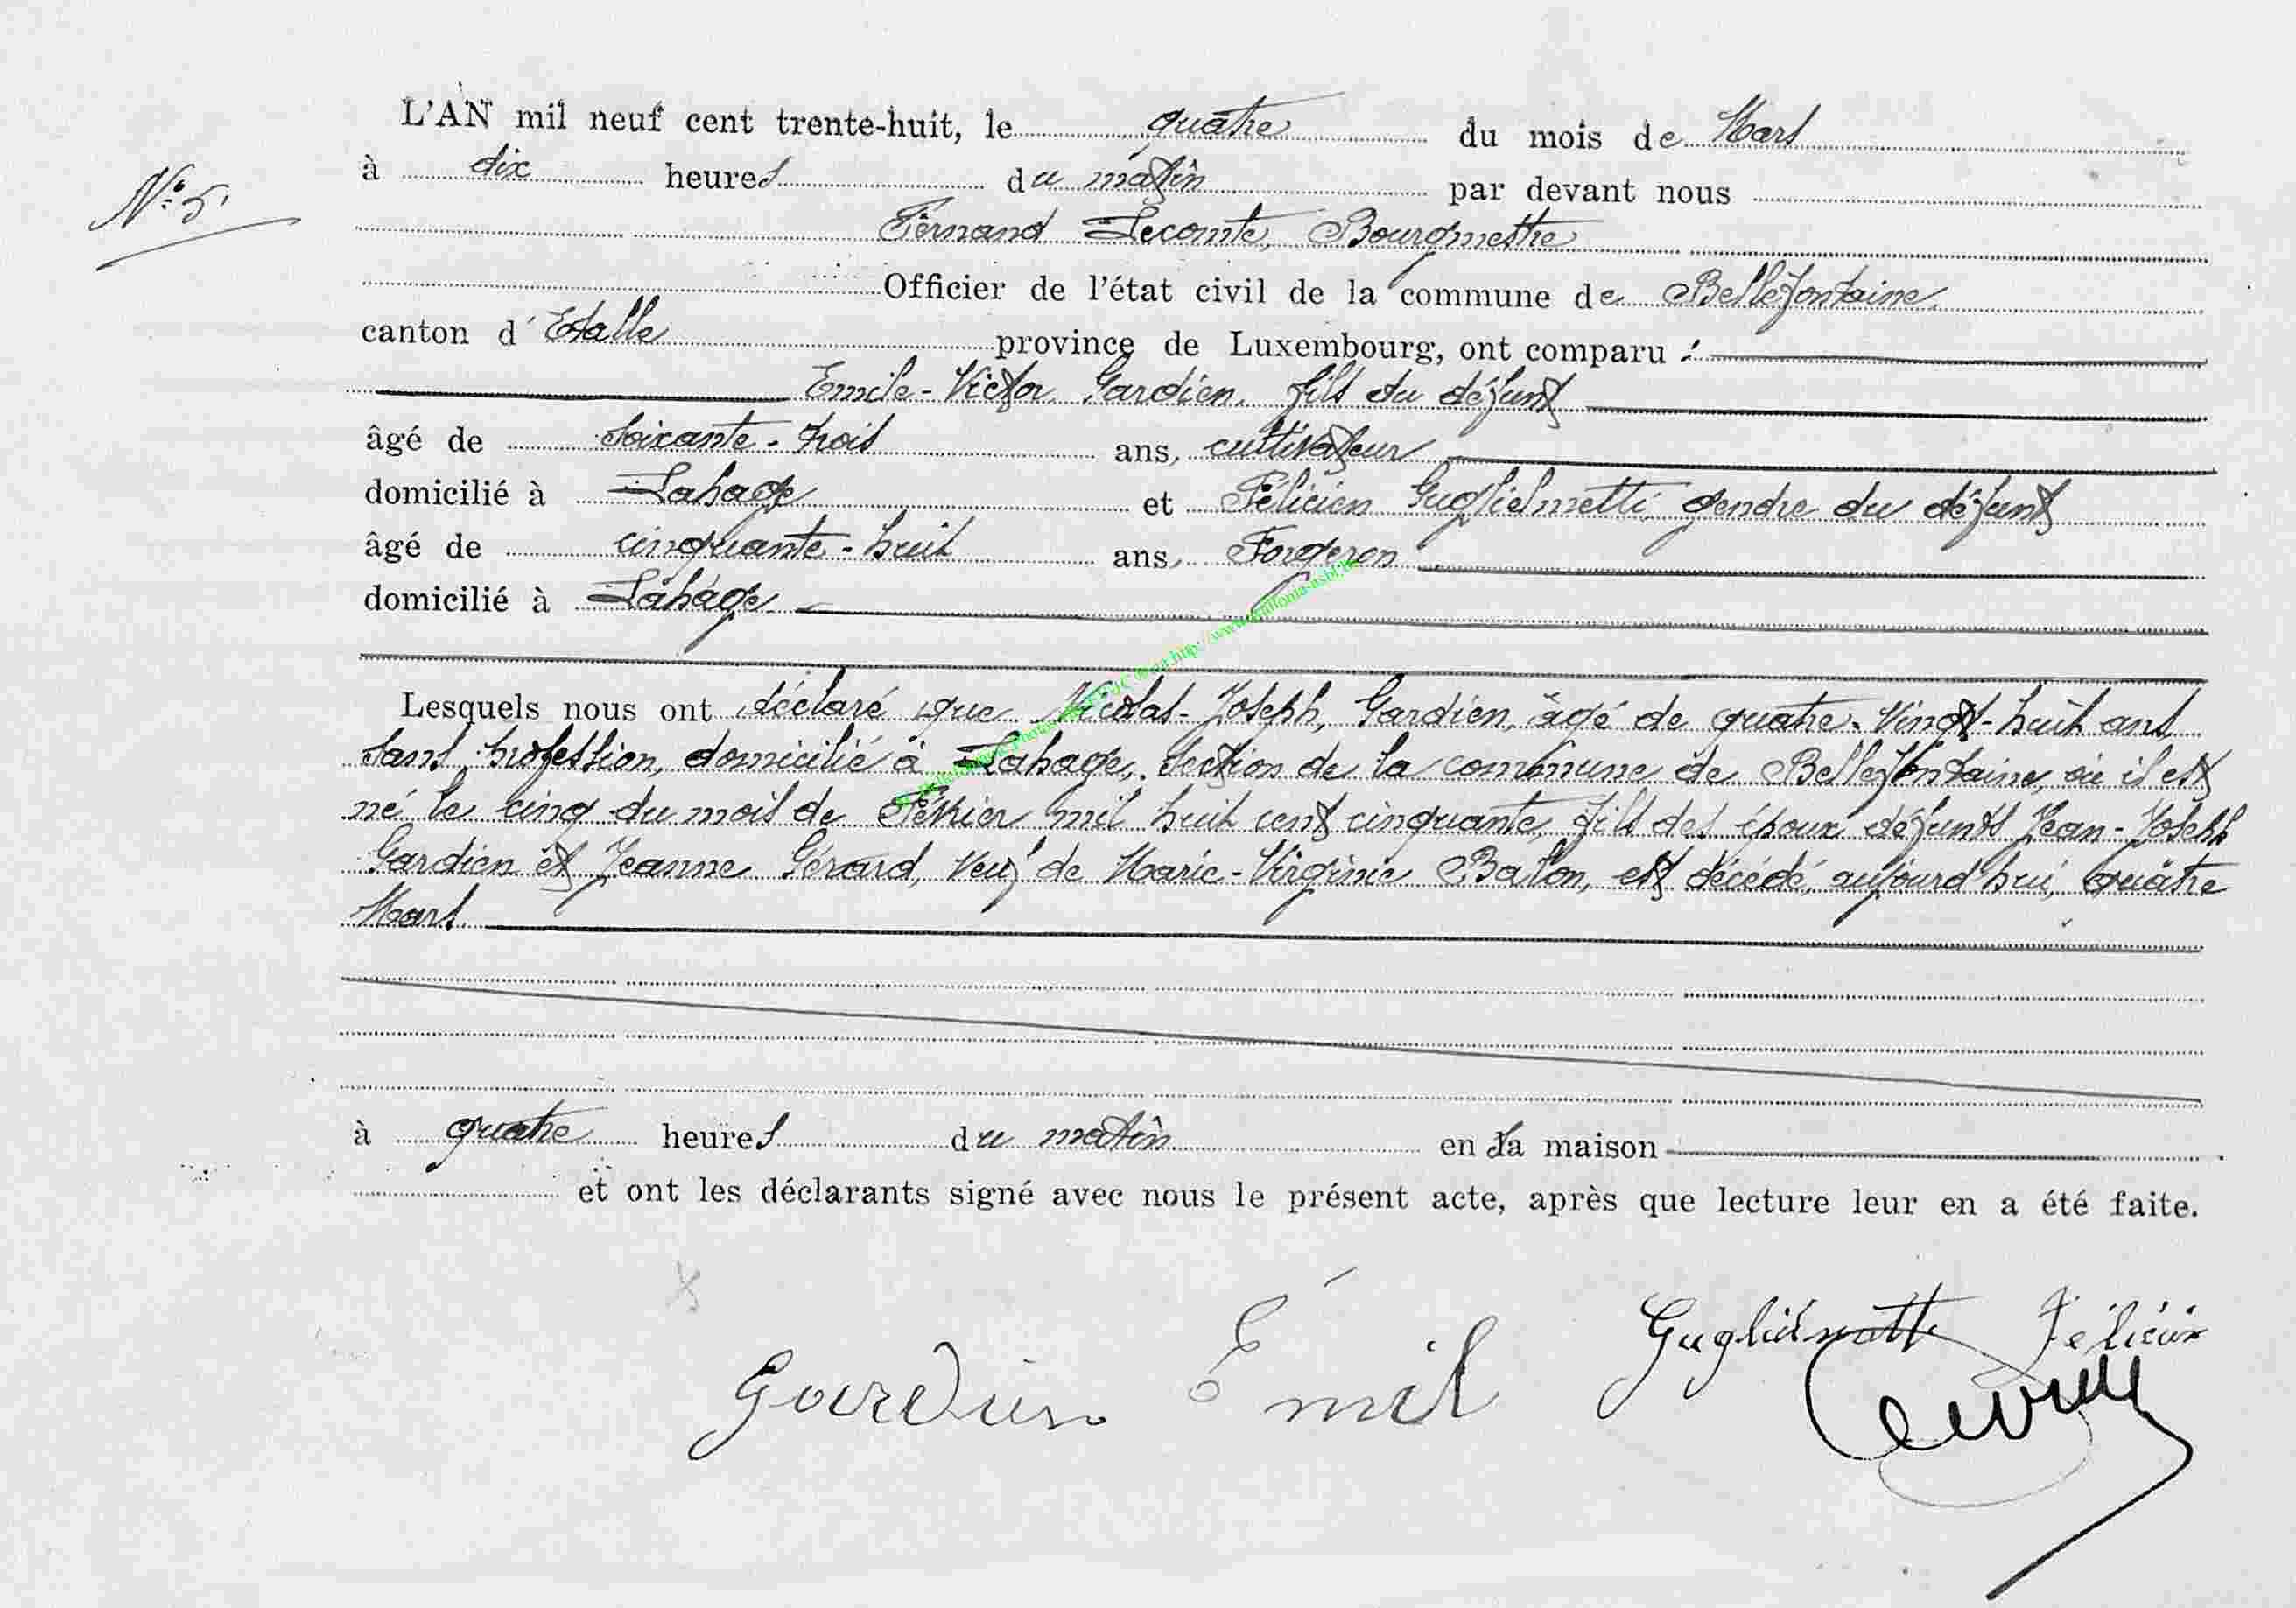 L'AN mil neuf cent trente-huit, le quatre du mois de Mars
N° 5.
à dix heures du matin par devant nous
Fernand Lecomte, Bourgmestre
Officier de l'état civil de la commune de Bellefontaine,
canton d'Etalle province de Luxembourg, ont comparu :
Emile-Victor Gardien, fils du défunt
âgé de soixante-trois ans, cultivateur
domicilié à Lahage et Félicien Guglielmetti, gendre du défunt
âgé de cinquante-huit ans, Forgeron
domicilié à Lahage.
Lesquels nous ont déclaré que Nicolas-Joseph, Gardien, âgé de quatre-vingt-huit ans,
sans profession, domicilié à Lahage, section de la commune de Bellefontaine, où il est
né le cinq du mois de Février mil huit cent cinquante, fils des époux défunts Jean-Joseph
Gardien et Jeanne Gérard, Veuf de Marie-Virginie Balon, est décédé, aujourd'hui, quatre
Mars.
à quatre heures du matin en sa maison
et ont les déclarants signé avec nous le présent acte, après que lecture leur en a été faite.
Guglielmetti Félicien
Gardien Émil